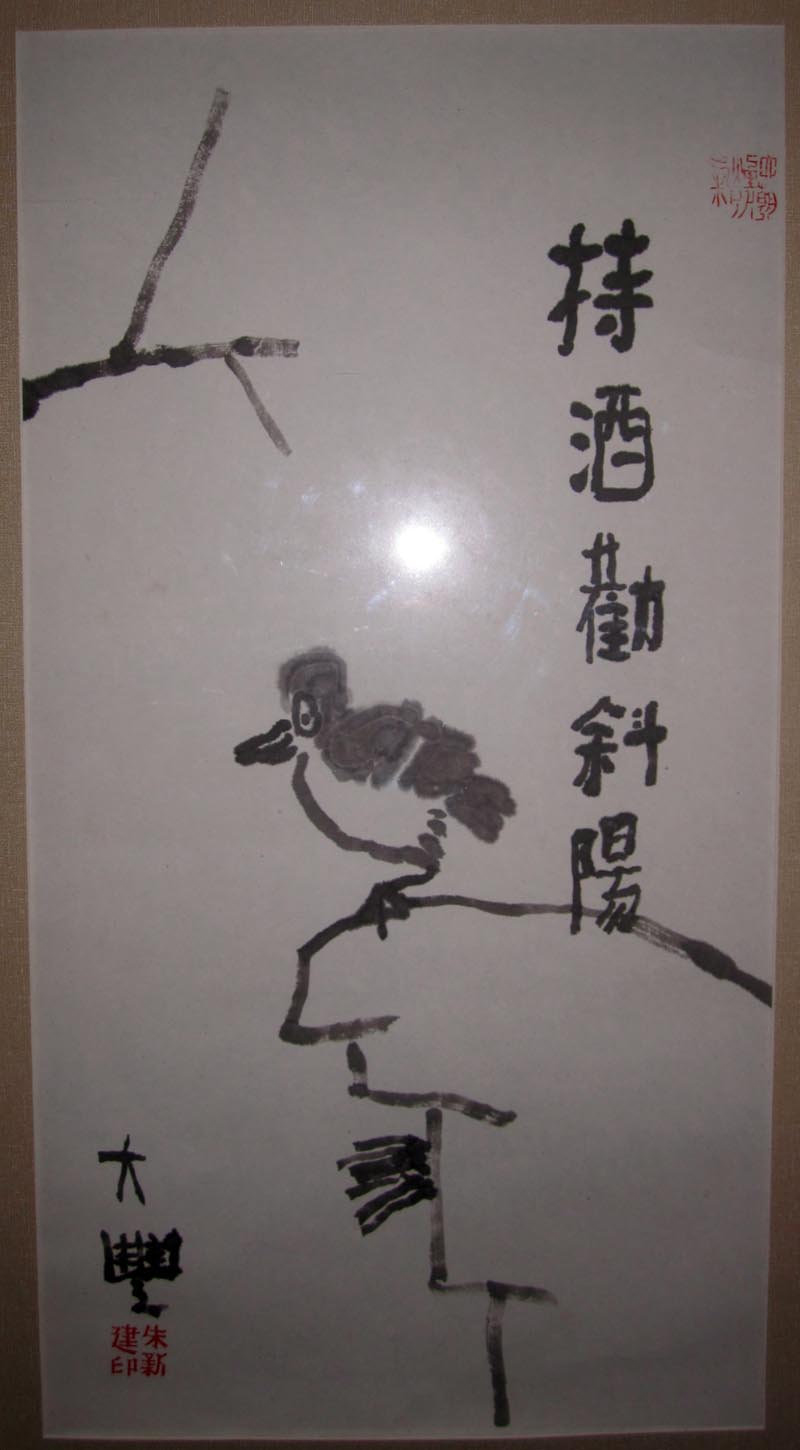 持酒勸斜陽
大豐
朱新建印